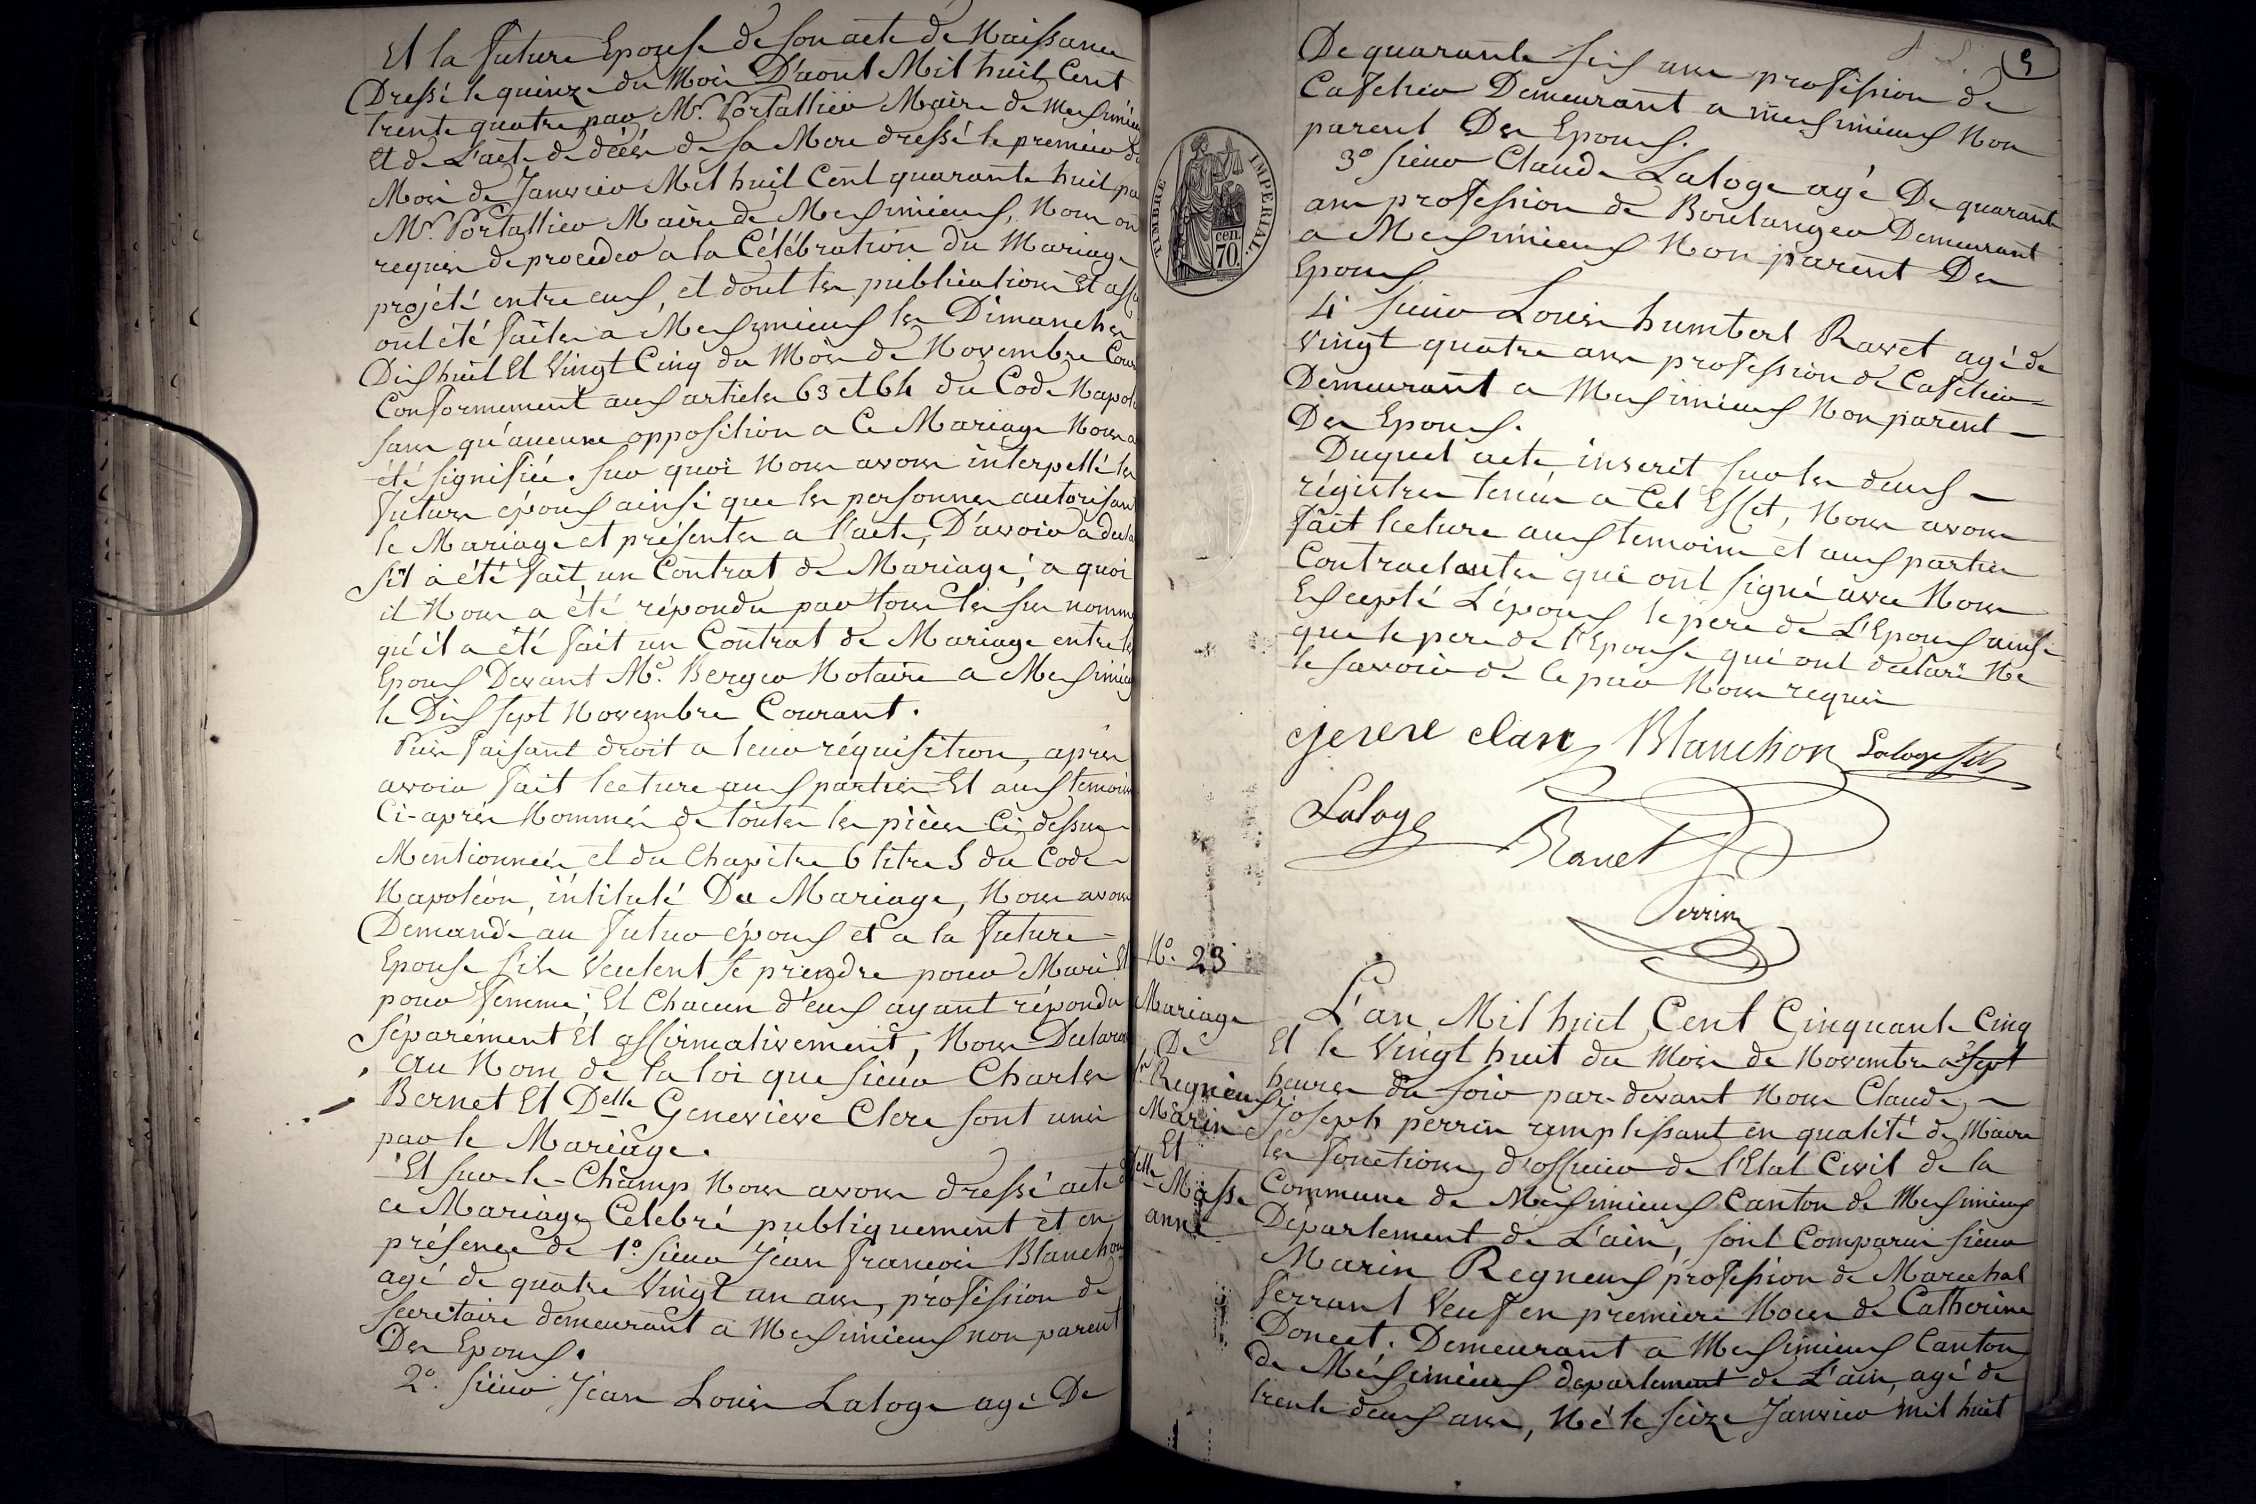 Et la future Epouse de son acte de Naissance
Dressé le quinze du Mois D'aout Mil huit Cent
trente quatre par Mr. Portallier Maire de Meximieux
Et de L'acte de décès de sa Mere dressé le premier du
Mois de Janvier Mil huit Cent quarante huit par
Mr. Portallier Maire de Meximieux, Nous ont
requis de proceder a la Célébration du Mariage
projété entre eux, et dont les publications Et aff
ont été faites a Meximieux les Dimanches
Dix huit Et Vingt Cinq du Mois de Novembre Cour
Conformement aux articles 63 et 64 du Code Napolé
sans qu'aucune opposition a Ce Mariage Nous a
été signifiée. Sur quoi Nous avons interpellé les
futurs époux ainsi que les personnes autorisant
le Mariage et présentes a l'acte, D'avoir a décla
S'il a été fait un Contrat de Mariage, a quoi
il Nous a été répondu par tous les sus nommé
qu'il a été fait un Contrat de Mariage entre les
Epoux Devant Me. Berger Notaire a Meximieux
le Dix sept Novembre Courant.
Puis faisant droit a leur réquisition, après
avoir fait lecture aux parties Et aux temoins
Ci-après Nommés de toutes les pièces Ci dessus
Mentionnées et du Chapitre 6 titre 5 du Code
Napoléon, intitulé Du Mariage, Nous avons
Demandé au futur époux et a la future
Epouse s'ils Veulent se prendre pour Mari Et
pour femme; Et Chacun d'eux ayant répondu
Séparément Et affirmativement, Nous Declarons
Au Nom de la loi que sieur Charles
Bernet Et Delle Genevieve Clere sont unis
par le Mariage.
Et sur-le-Champ Nous avons dressé acte de
ce Mariage Celebré publiquement et en
présence de 1º. Sieur Jean francois Blanchon
agé de quatre Vingt un ans, profession de
secretaire demeurant a Meximieux non parent
Des Epoux.
2º. Sieur Jean Louis Laloge agé De
5
De quarante six ans profession de
Cafetier Demeurant a meximieux Non
parent Des Epoux.
3º Sieur Claude Laloge agé De quarante
ans profession de Boulanger Demeurant
a Meximieux Non parent Des
Epoux
4º Sieur Louis humbert Ravet agé de
Vingt quatre ans profession de Cafetier
Demeurant a Meximieux Non parent
Des Epoux.
Duquel acte, inscrit sur les deux
régistres tenus a Cet Effet, Nous avons
fait lecture aux temoins et aux parties
Contractantes qui ont signé avec Nous
Excepté L'époux le pere de L'Epoux ainsi
que le pere de l'Epouse qui ont declaré Ne
le savoir de Ce par Nous requis
TIMBRE IMPERIAL.
70 cen
Blanchon Laloge fils
Laloge Ravet
Perrin
Nº. 23
Mariage
De
Sr. Regneux
Marin
Et
Delle Masse
anne
L'an Mil huit Cent Cinquante Cinq
Et le Vingt huit du Mois de Novembre a Sept
heures du soir par-devant Nous Claude
Joseph perrin remplissant en qualité de Maire
les fonctions d'officier de l'Etat Civil de la
Commune de Meximieux Canton de Meximieux
Département de L'ain, sont Comparus sieur
Marin Regneux profession de Marechal
ferrant Veuf en premiere Noces de Catherine
Doncet. Demeurant a Meximieux Canton
de Méximieux departement de L'ain, agé de
trente deux ans, Né le seize Janvier mil huit